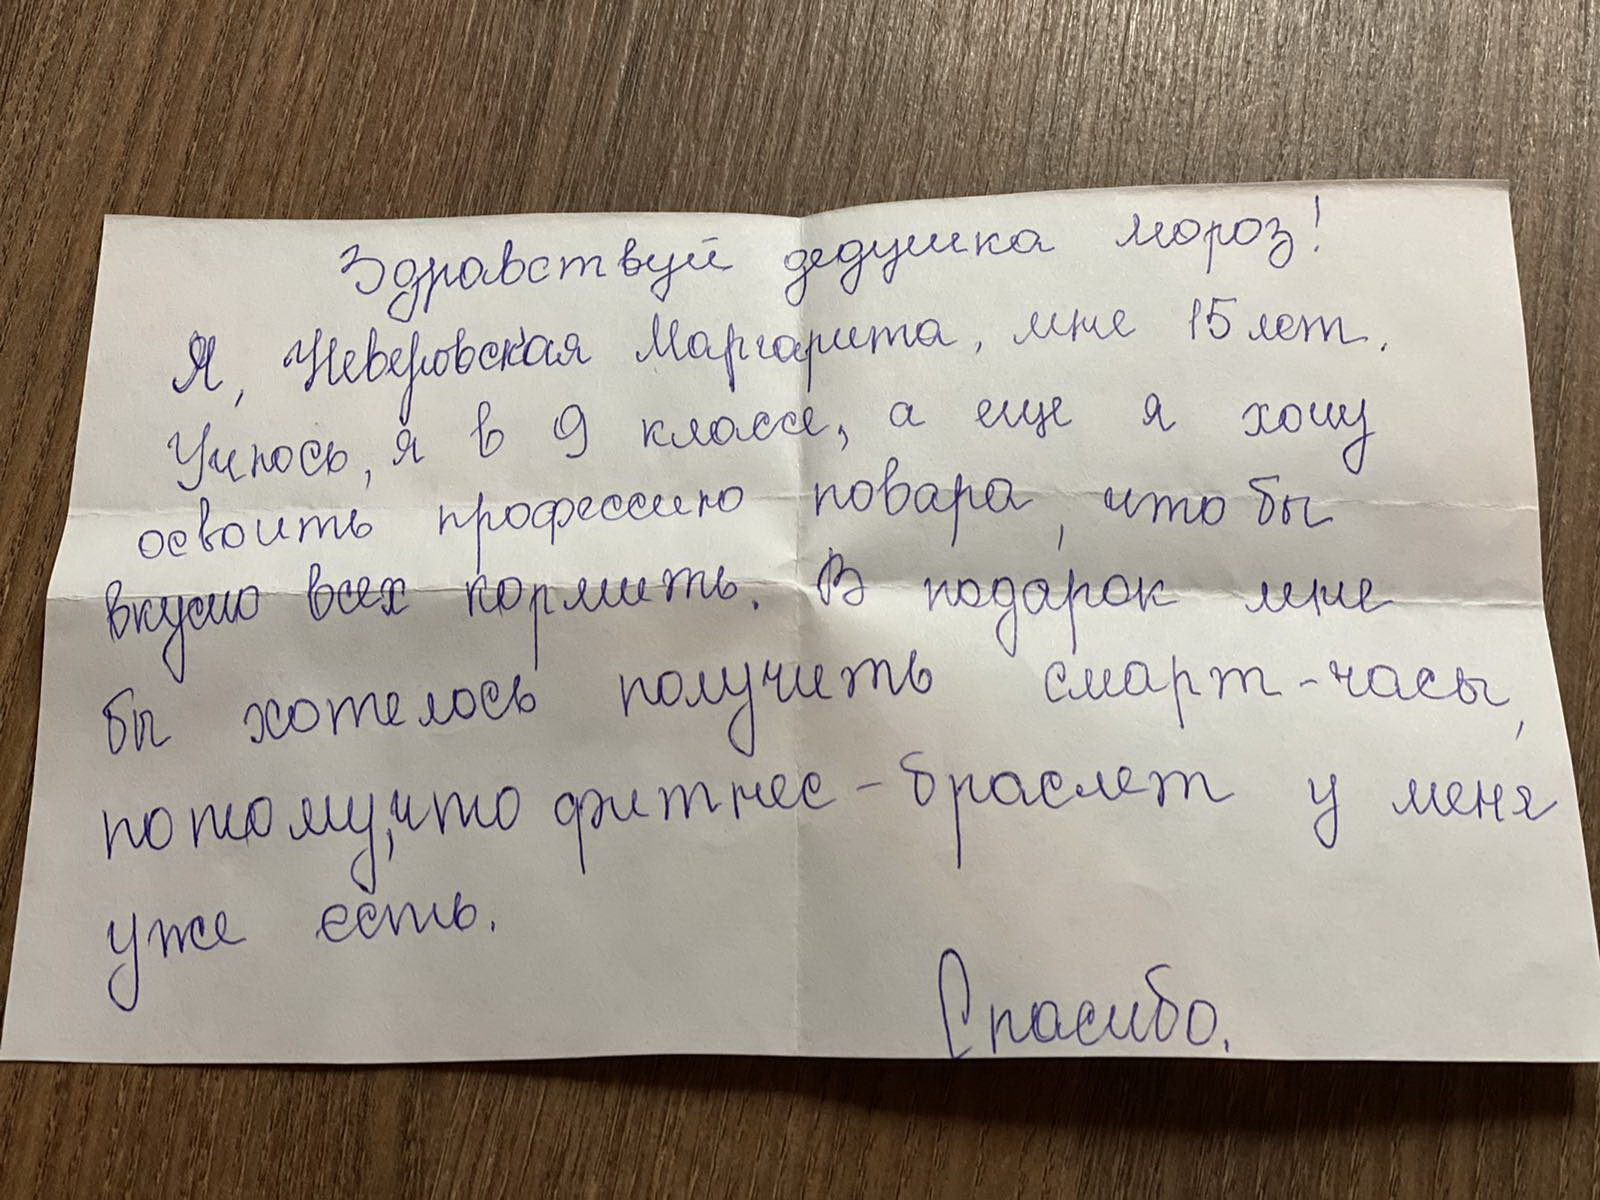 Здравствуй дедушка мороз!
Я, Неверовская Маргарита, мне 15 лет.
Учюсь, я в 9 классе, а еще я хочу
освоить профессию повара, что бы
вкусно всех кормить. В подарок мне
бы хотелось получить смарт-часы,
потому,что фитнес-браслет у меня
уже есть.
Спасибо.